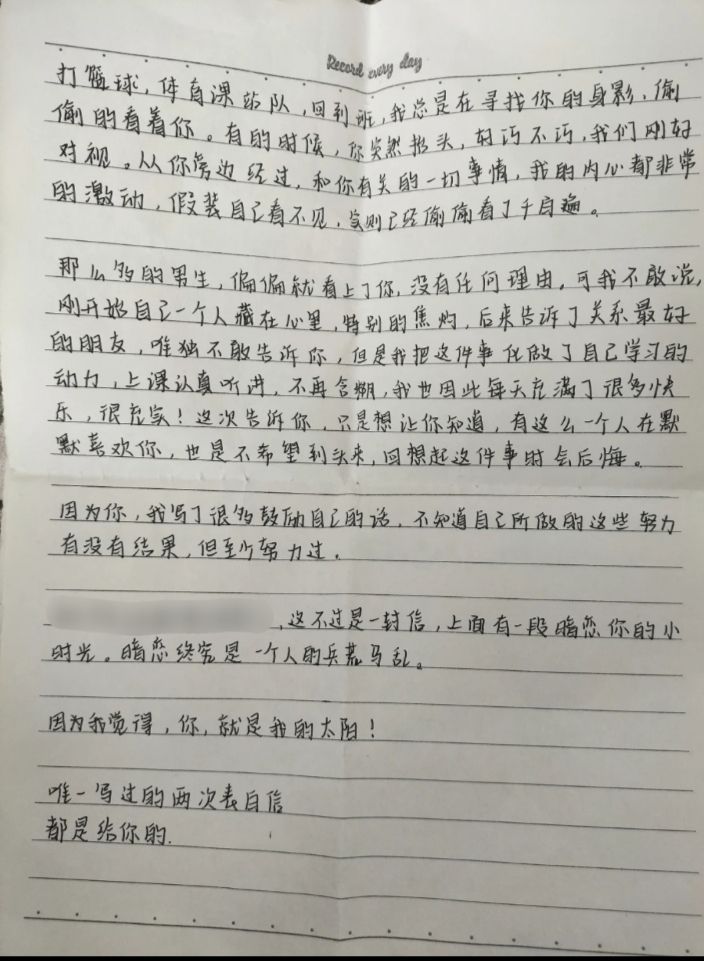 Record every day
打篮球，体育课站队，回到班，我总是在寻找你的身影，偷
偷的看着你。有的时候，你突然抬头，好巧不巧，我们刚好
对视。从你旁边经过，和你有关的一切事情，我的内心都非常
的激动，假装自己看不见，实则已经偷偷看了千百遍。
那么多的男生，偏偏就看上了你，没有任何理由。可我不敢说，
刚开始自己一个人藏在心里，特别的焦灼，后来告诉了关系最好
的朋友，唯独不敢告诉你，但是我把这件事化做了自己学习的
动力，上课认真听讲，不再含糊，我也因此每天充满了很多快
乐，很充实！这次告诉你，只是想让你知道，有这么一个人在默
默喜欢你，也是不希望到头来，回想起这件事时会后悔。
因为你，我写了很多鼓励自己的话，不知道自己所做的这些努力
有没有结果，但至少努力过。
，这不过是一封信，上面有一段暗恋你的小
时光。暗恋终究是一个人的兵荒马乱。
因为我觉得，你，就是我的太阳！
唯一写过的两次表白信
都是给你的.